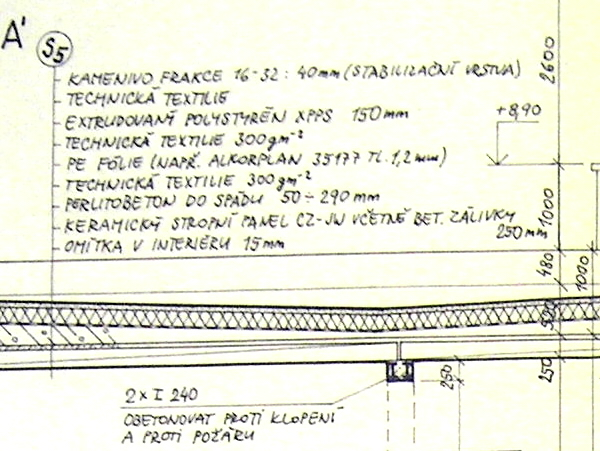 A'
S5
KAMENIVO FRAKCE 16-32 : 40mm (STABILIZAČNÍ VRSTVA)
TECHNICKÁ TEXTILIE
EXTRUDOVANÝ POLYSTYRÉN XPPS 150mm
TECHNICKÁ TEXTILIE 300gm⁻²
PE FÓLIE (NAPŘ. ALKORPLAN 35177 TL. 1,2mm)
TECHNICKÁ TEXTILIE 300gm⁻²
PERLITOBETON DO SPÁDU 50÷290mm
KERAMICKÝ STROPNÍ PANEL CZ-JW VČETNĚ BET. ZÁLIVKY
250mm
OMÍTKA V INTERIÉRU 15mm
+8,90
2600
1000
480
1000
250
250
2 x I 240
OBETONOVAT PROTI KLOPENÍ
A PROTI POŽÁRU